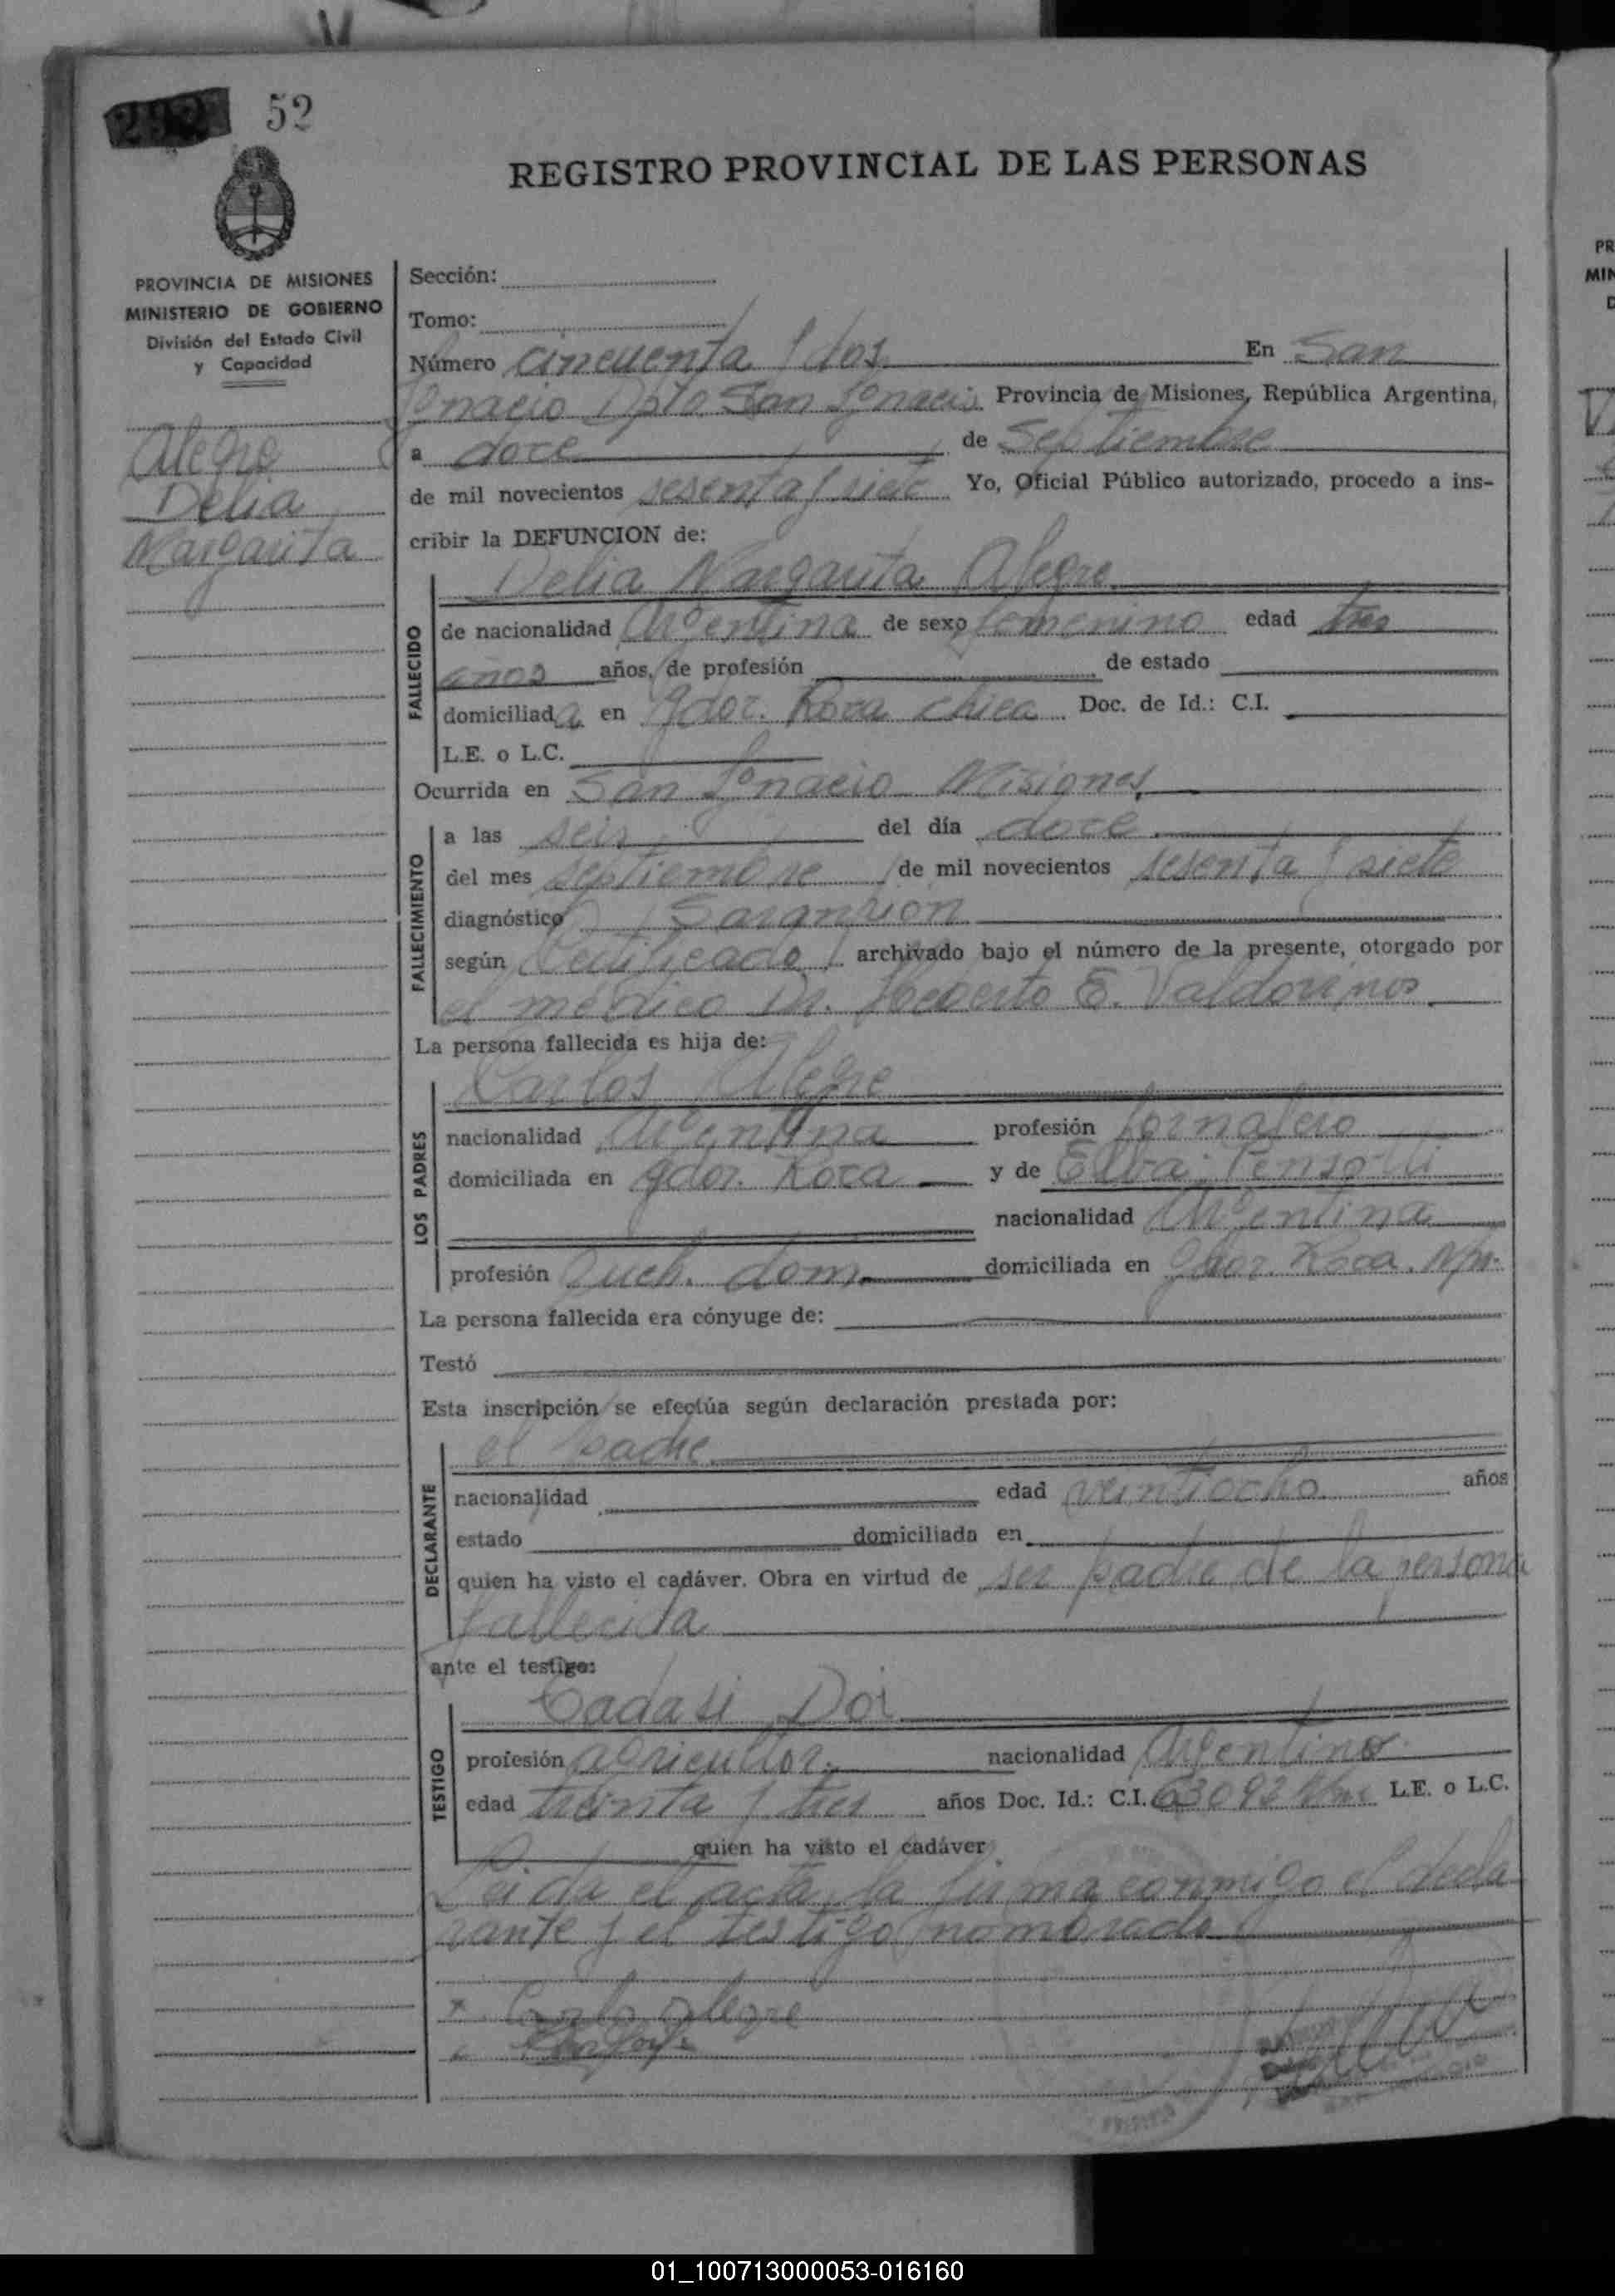 52
REGISTRO PROVINCIAL DE LAS PERSONAS
PROVINCIA DE MISIONES
MINISTERIO DE GOBIERNO
División del Estado Civil
y Capacidad
Alegre
Delia
Margarita
Sección:
Tomo:
Número cincuenta y dos En San
Ignacio Dpto San Ignacio Provincia de Misiones, República Argentina,
a doce de Septiembre
de mil novecientos sesenta y siete Yo, Oficial Público autorizado, procedo a ins-
cribir la DEFUNCION de:
Delia Margarita Alegre
FALLECIDO
de nacionalidad Argentina de sexo femenino edad tres
años años, de profesión de estado
domiciliada en Gdor. Roca chica Doc. de Id.: C.I.
L.E. o L.C.
Ocurrida en San Ignacio Misiones
FALLECIMIENTO
a las seis del día doce
del mes septiembre de mil novecientos sesenta y siete
diagnóstico
según Certificado archivado bajo el número de la presente, otorgado por
el médico Dr. E. Valdovinos
La persona fallecida es hija de:
Carlos Alegre
LOS PADRES
nacionalidad Argentina profesión Jornalero
domiciliada en Gdor. Roca y de Elba
nacionalidad Argentina
profesión Queh. dom. domiciliada en Gdor. Roca. Mns.
La persona fallecida era cónyuge de:
Testó
Esta inscripción se efectúa según declaración prestada por:
el padre
DECLARANTE
nacionalidad edad veintiocho años
estado domiciliada en
quien ha visto el cadáver. Obra en virtud de ser padre de la persona
fallecida
ante el testigo:
Tadasi Doi
TESTIGO
profesión agricultor. nacionalidad Argentino
edad treinta y tres años Doc. Id.: C.I. 63092 L.E. o L.C.
quien ha visto el cadáver
Leida el acta, la firma conmigo el decla
rante y el testigo nombrado
x Carlos Alegre
PR
MIN
D
01_100713000053-016160